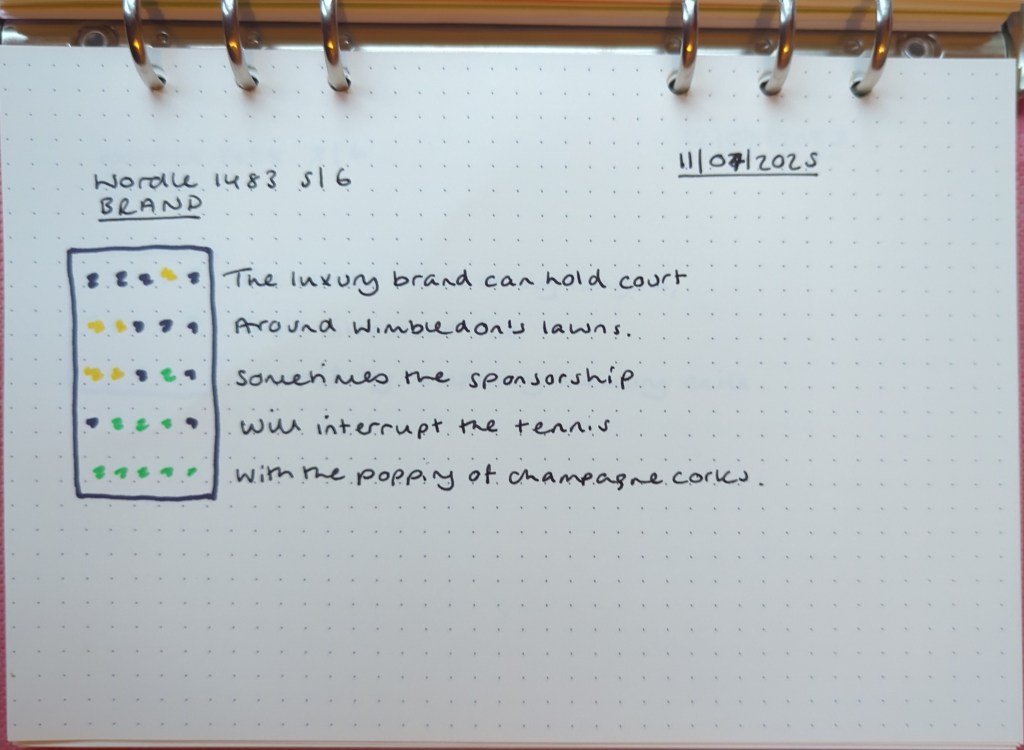 11/07/2025
Wordle 1483 5/6
BRAND
The luxury brand can hold court
Around Wimbledon's lawns.
Sometimes the sponsorship
Will interrupt the tennis
With the popping of champagne corks.